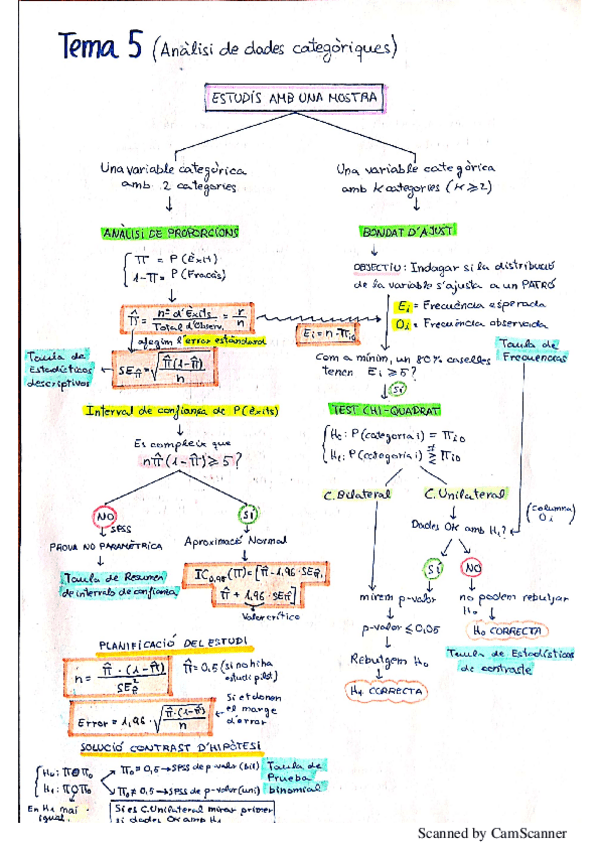 Tema 5 (Anàlisi de dades categòriques)
ESTUDIS AMB UNA MOSTRA
Una variable categòrica
amb 2 categories
ANÀLISI DE PROPORCIONS
π = P(Èxit)
1-π = P(Fracàs)
π̂ = nº d'Èxits / Total d'Observ. = r / n
afegim l'error estàndard
Taula de
Estadísticos
descriptivos
SE_π̂ = √(π̂(1-π̂) / n)
Interval de confiança de P(Èxits)
Es compleix que
nπ̂(1-π̂) ≥ 5?
NO
SPSS
PROVA NO PARAMÈTRICA
Taula de Resumen
de intervalos de confianza
SÍ
Aproximació Normal
IC0,95(π) = [π̂ - 1,96 · SEπ̂,
π̂ + 1,96 · SEπ̂]
Valor crític
PLANIFICACIÓ DEL ESTUDI
n = π̂ · (1-π̂) / SE²π̂
π̂ = 0,5 (si no hi ha
estudi pilot)
Error = 1,96 · √(π̂·(1-π̂) / n)
Si et donen
el marge
d'error
SOLUCIÓ CONTRAST D'HIPÒTESI
H0: π = π0
H1: π ≠ π0
En H1 mai
igual.
π0 = 0,5 → SPSS de p-valor (bil)
π0 ≠ 0,5 → SPSS de p-valor (uni)
Taula de
Prueba
binomial
Si es C. Unilateral mirar primer
si dades OK amb H1
Una variable categòrica
amb K categories (K ≥ 2)
BONDAT D'AJUST
OBJECTIU: Indagar si la distribució
de la variable s'ajusta a un PATRÓ
Ei = Freqüència esperada
Oi = Freqüència observada
Ei = n · πi0
Taula de
Frecuencias
Com a mínim, un 80% caselles
tenen Ei ≥ 5?
SÍ
TEST CHI-QUADRAT
H0: P(categoria i) = πi0
H1: P(categoria i) ≠ πi0
C. Bilateral
C. Unilateral
Dades OK amb H1?
(columna
Oi)
SÍ
NO
mirem p-valor
p-valor ≤ 0,05
Rebutgem H0
H1 CORRECTA
no podem rebutjar
H0
H0 CORRECTA
Taula de Estadísticos
de contraste
Scanned by CamScanner